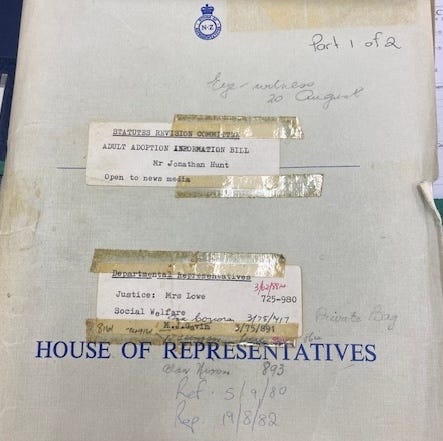 N·Z
Part 1 of 2
Eye-witness
20 August
STATUTES REVISION COMMITTEE
ADULT ADOPTION INFORMATION BILL
Mr Jonathan Hunt
Open to news media
Departmental Representatives
Justice: Mrs Lowe 725-980
Social Welfare
3/75/417
M. Gavin 3/75/891
Private Bag
HOUSE OF REPRESENTATIVES
893
Ref. 5/9/80
Rep. 19/8/82